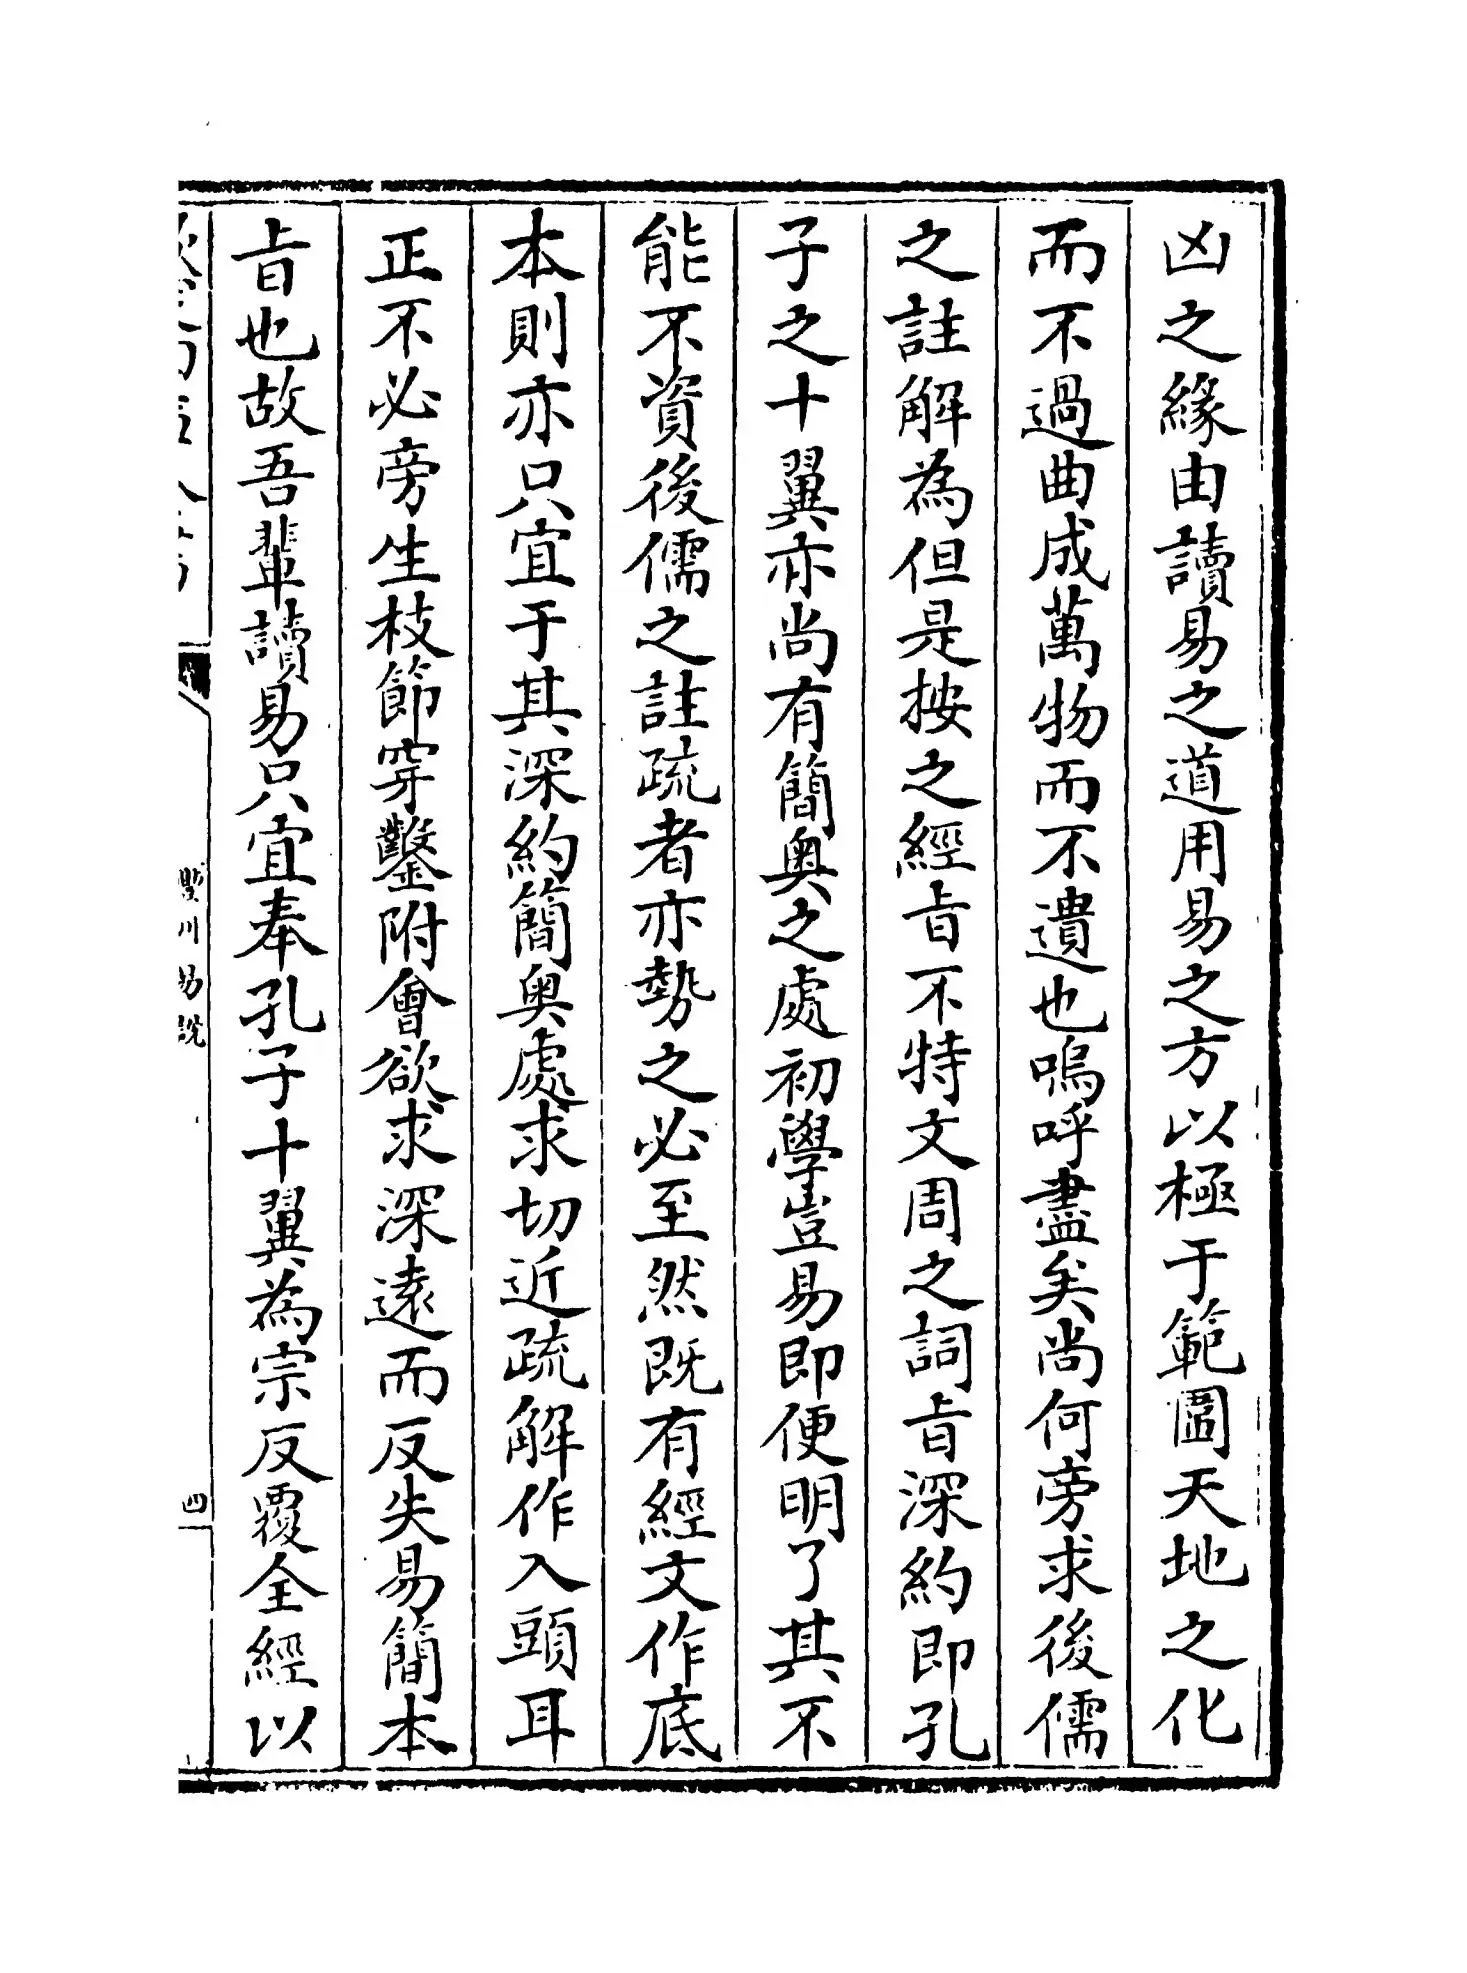 凶之緣由讀易之道用易之方以極于範圍天地之化
而不過曲成萬物而不遺也嗚呼盡矣尚何旁求後儒
之註解為但是按之經㫖不特文周之詞㫖深約即孔
子之十翼亦尚有簡奥之處初學豈易即便明了其不
能不資後儒之註疏者亦勢之必至然既有經文作底
本則亦只宜于其深約簡奥處求切近疏解作入頭耳
正不必旁生枝節穿鑿附會欲求深遠而反失易簡本
㫖也故吾輩讀易只宜奉孔子十翼為宗反覆全經以
豐川易說
四